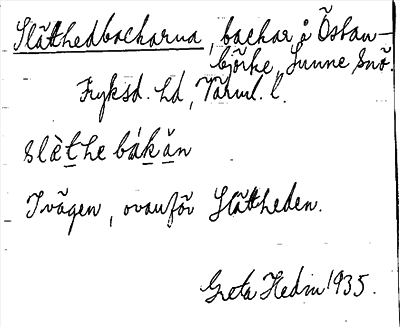 Slätthedbackarna, backar å Östan-
björke, Sunne Snö.
Fryksd. hd, Värml. l.
slèt̲he bák̲ă̲n
I vägen, ovanför Slättheden.
Greta Hedin 1935.